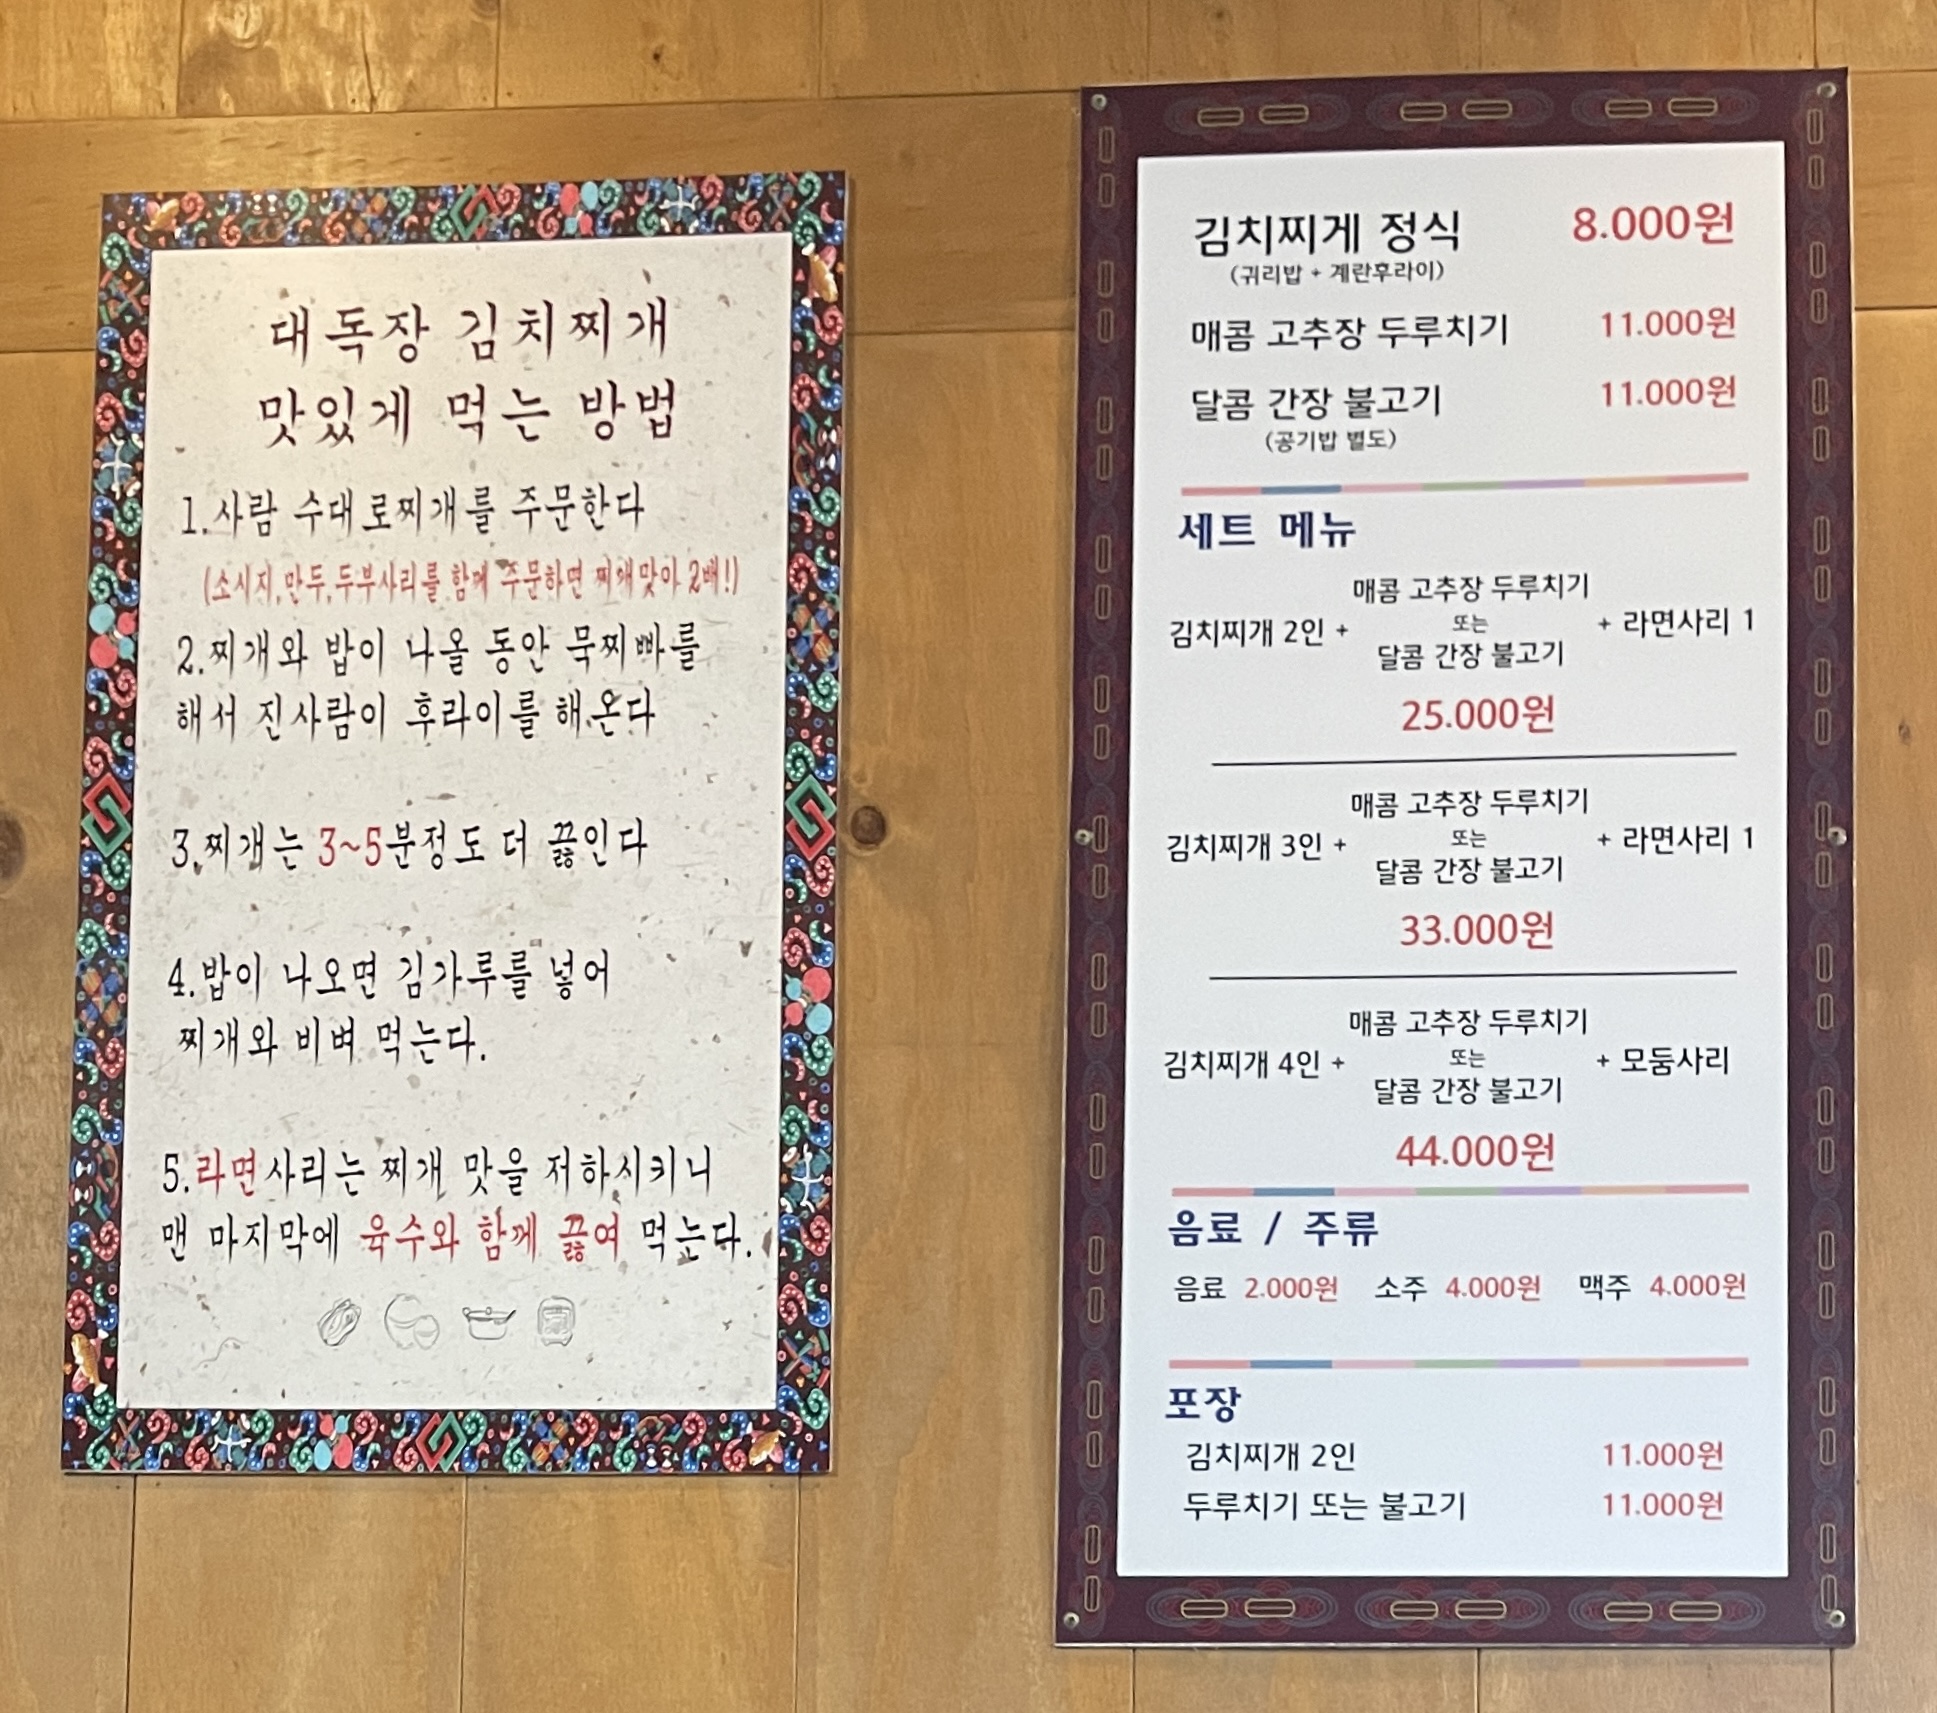 대독장 김치찌개
맛있게 먹는 방법
1.사람 수대로찌개를 주문한다
(소시지,만두,두부사리를 함께 주문하면 찌개맛이 2배!)
2.찌개와 밥이 나올 동안 묵찌빠를
해서 진사람이 후라이를 해.온다
3.찌개는 3~5분정도 더 끓인다
4.밥이 나오면 김가루를 넣어
찌개와 비벼 먹는다.
5.라면사리는 찌개 맛을 저하시키니
맨 마지막에 육수와 함께 끓여 먹는다.
김치찌게 정식 8.000원
(귀리밥 + 계란후라이)
매콤 고추장 두루치기 11.000원
달콤 간장 불고기 11.000원
(공기밥 별도)
세트 메뉴
매콤 고추장 두루치기
김치찌개 2인 + 또는 + 라면사리 1
달콤 간장 불고기
25.000원
매콤 고추장 두루치기
김치찌개 3인 + 또는 + 라면사리 1
달콤 간장 불고기
33.000원
매콤 고추장 두루치기
김치찌개 4인 + 또는 + 모둠사리
달콤 간장 불고기
44.000원
음료 / 주류
음료 2.000원 소주 4.000원 맥주 4.000원
포장
김치찌개 2인 11.000원
두루치기 또는 불고기 11.000원